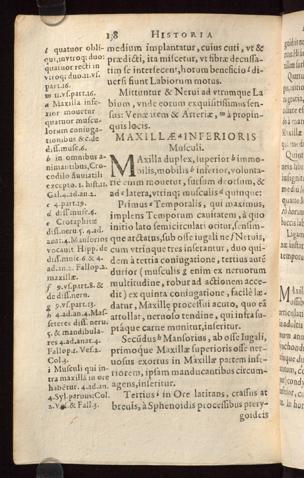 138 HISTORIA
l quatuor obli-
qui, in vtroq; duo:
quatuor recti in
vtroq; duo. 11. vſ.
part. 16.
m 11. vſ. part. 16.
a Maxilla infe-
rior mouetur
quatuor muſcu-
lorum coniuga-
tionibus & c. de
diſſ. muſc. 6.
b in omnibus a-
nimantibus, Cro-
codilo fluuiatili
excepto. 1. hiſt. 11.
Gal. 4. ad. an. 2.
c 4. part. 19.
d diſſ. muſc. 6.
e Crotaphitæ
diſſ. neru. 5. 4. ad.
anat. 4. Manſorios
vocauit Hipp. de
diſſ. muſc. 6. & 4.
ad. an. 2. Fallop. 2.
maxillæ.
f 9. vſ. part. 8. &
de diſſ. neru.
g 9. vſ. part. 13.
h 4. ad. an. 4. Maſ-
ſeteres diſſ. neru.
5. & mandibula-
res 4. ad. anat. 4.
Fallop. 2. Veſ. 2.
Col. 3.
i Muſculi qui in-
tra maxillã in ore
habẽtur. 4. ad. an.
4. Syl. paruus: Col.
2. Veſ. & Fall. 3.
medium implantatur, cuius cuti, vt &
prædicti, ita miſcetur, vt fibræ decuſſa-
tim ſe interſecent, horum beneficio l di-
uerſi fiunt Labiorum motus.
Mittuntur & Nerui ad vtrumque La-
bium, vnde eorum exquiſitiſſimus ſen-
ſus: Venæ item & Arteriæ, m à propin-
quis locis.
MAXILLÆ a INFERIORIS
Muſculi.
Maxilla duplex, ſuperior b immo-
bilis, mobilis b inferior, volunta-
rie enim mouetur, ſurſum deorſum, &
ad c latera, vtrinq; muſculis d quinque:
Primus e Temporalis, qui maximus,
implens Temporum cauitatem, à quo
initio lato ſemicirculari oritur, ſenſim-
que arctatus, ſub oſſe iugali
cum vtrinque tres inſerantur, duo qui-
dem à tertia coniugatione, tertius autẽ
durior (muſculis g enim ex neruorum
multitudine, robur ad actionem acce-
dit) ex quinta coniugatione, facilè læ-
datur, Maxillæ proceſſui acuto, quo eã
attollat, neruoſo tendine, qui infra ſu-
ptáque carne munitur, inſeritur.
Secũdus h Manſorius, ab oſſe Iugali,
primoque Maxillæ ſuperioris oſſe ner-
uoſus exortus in Maxillæ partem infe-
riorem, ipſam manducantibus circum-
agens, inſeritur.
Tertius i in Ore latitans, craſſus at
breuis, à Sphenoidis proceſſibus ptery-
goideis